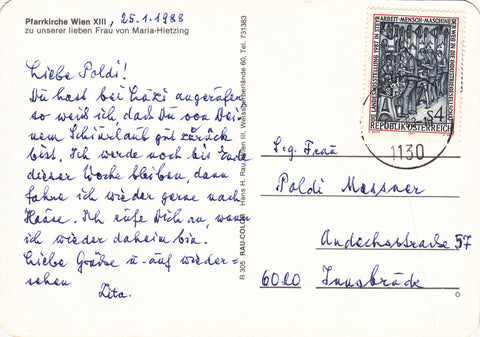 Pfarrkirche Wien XIII, 25.1.1988
zu unserer lieben Frau von Maria-Hietzing
Liebe Poldi!
Du hast bei Lázi angerufen,
so weiß ich, daß Du von Dei-
nem Schiurlaub gut zurück
bist. Ich werde noch bis Ende
dieser Woche bleiben, dann
fahre ich wieder gerne nach
Hause. Ich rufe Dich an, wenn
ich wieder daheim bin.
Liebe Grüße u. auf wieder-
sehen
Zita.
R 305 RAU-COLOR Hans H. Rau, Wien III, Weissgerberlände 60, Tel. 731383
ARBEIT-MENSCH-MASCHINE
S4
REPUBLIK ÖSTERREICH
1130
S.g. Frau
Poldi Messner
Andechsstraße 57
6020 Innsbruck